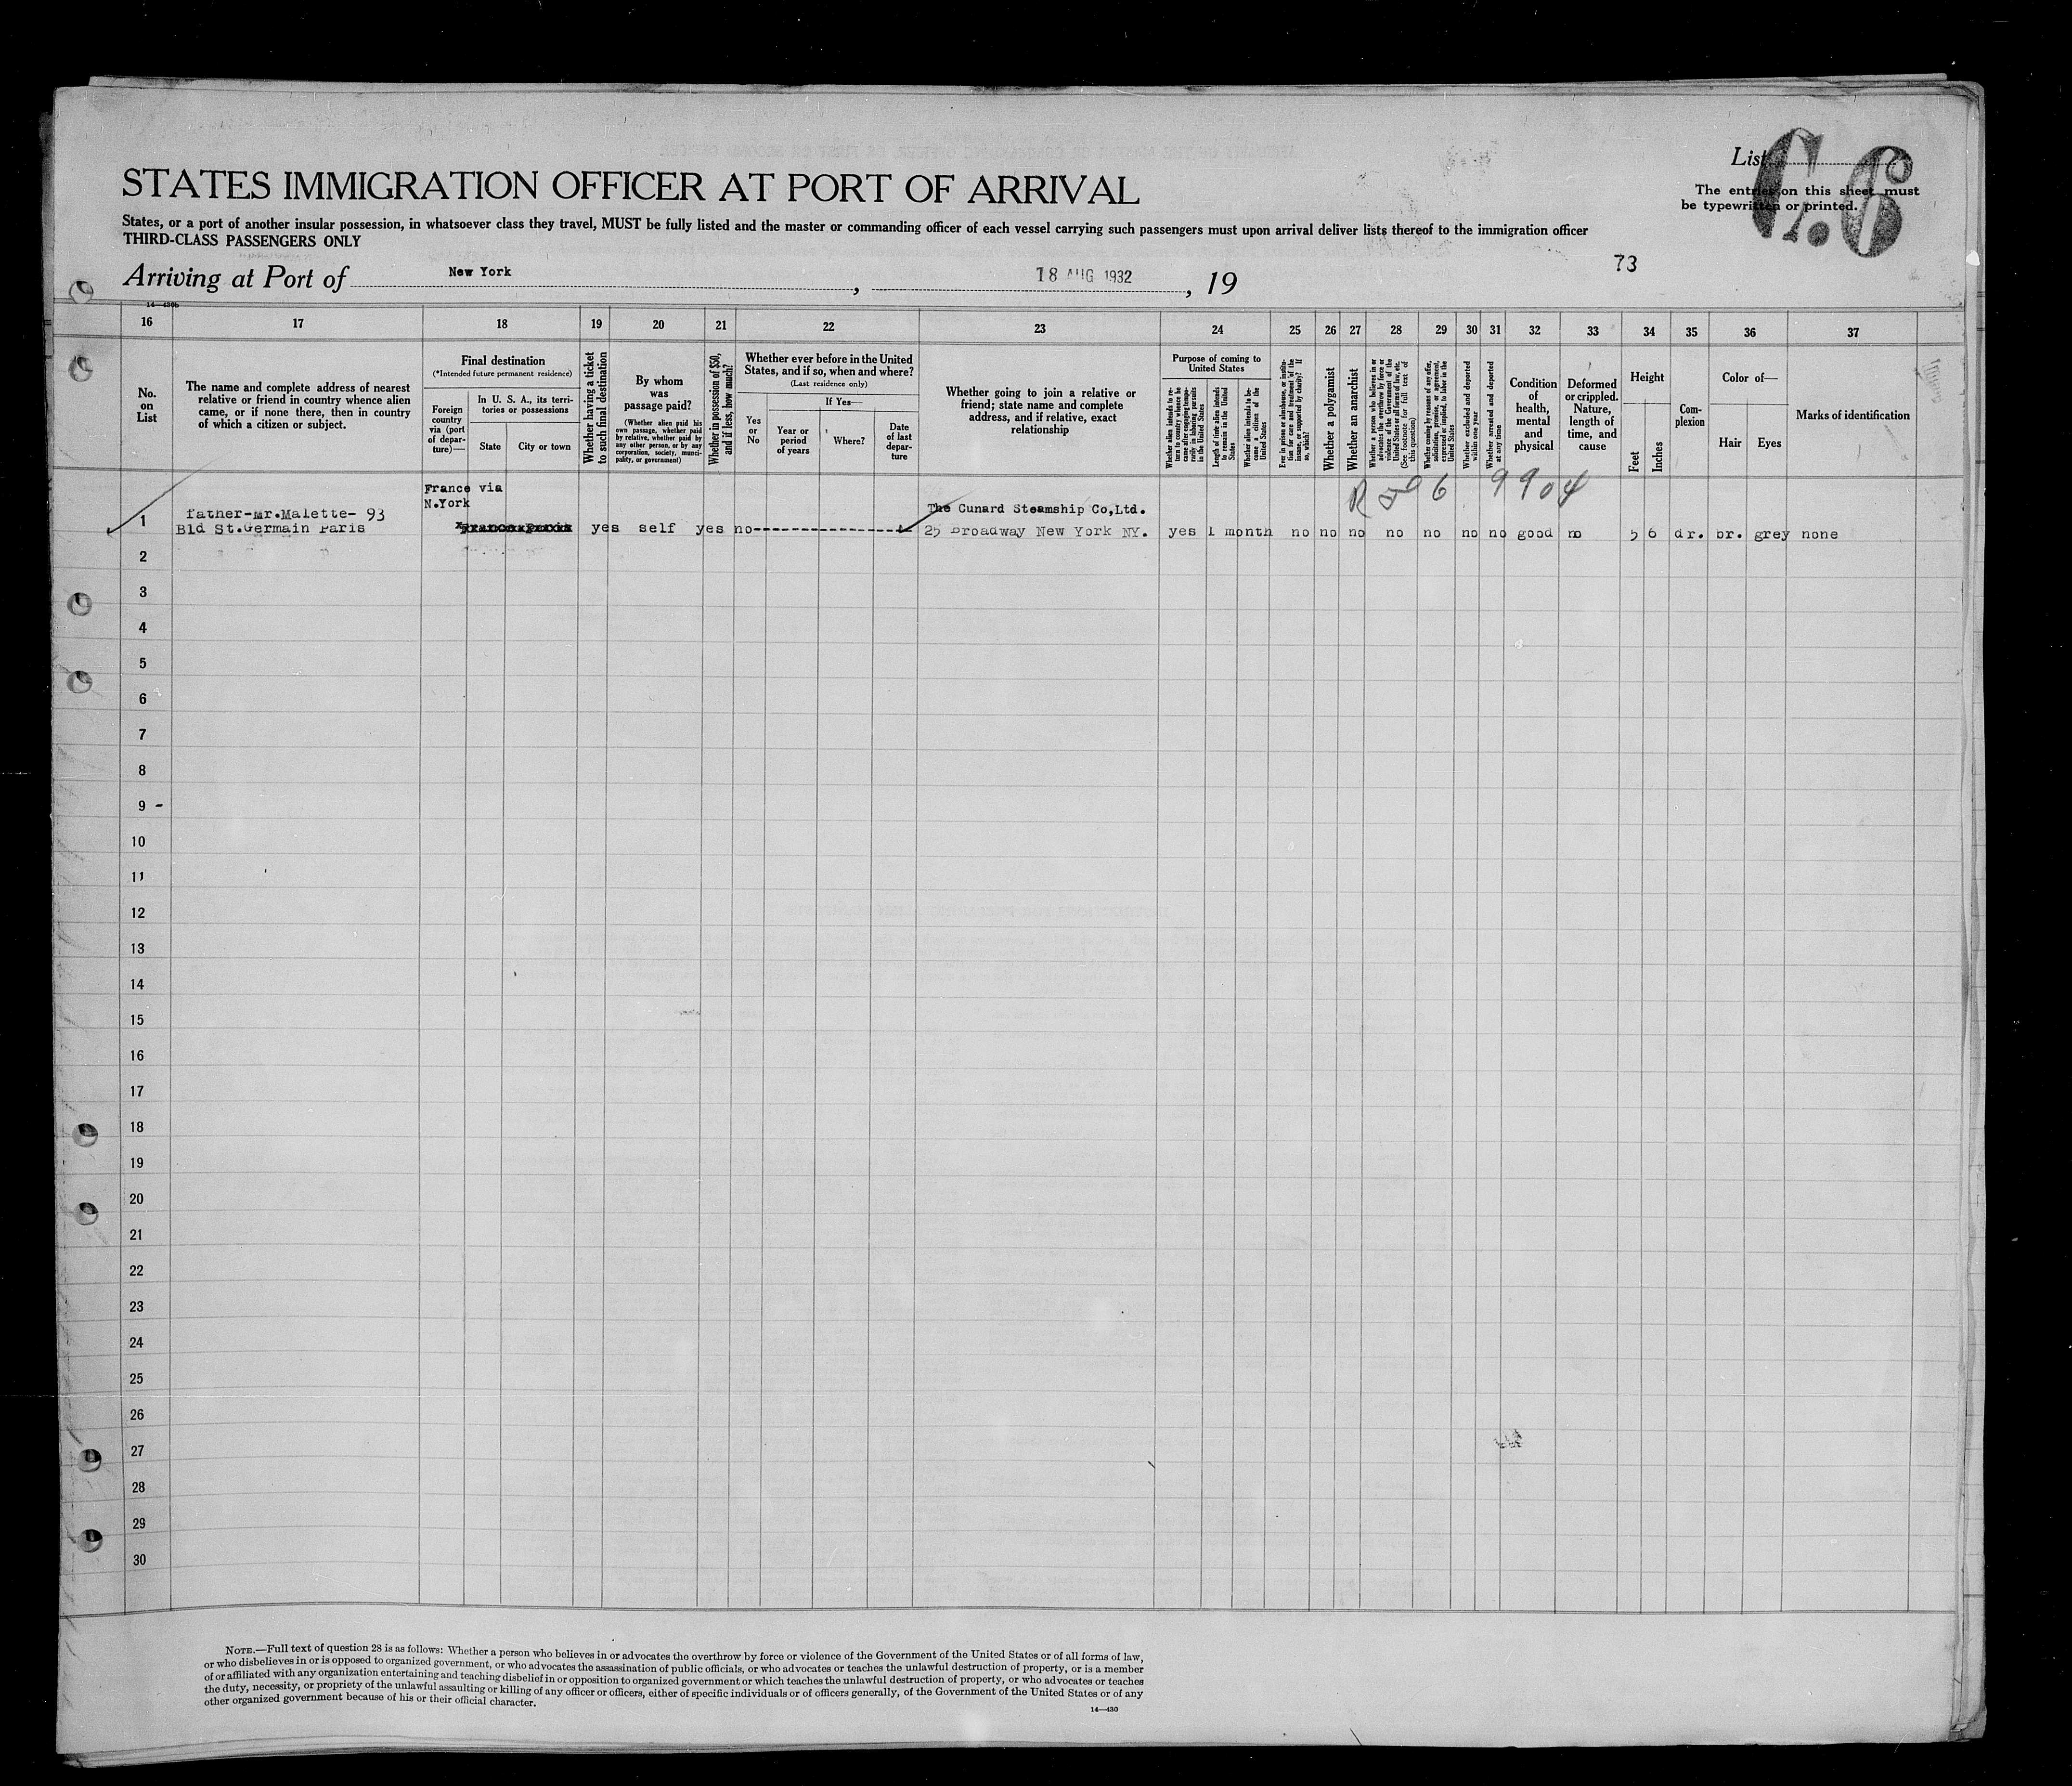 List
C.6
The entries on this sheet must
be typewritten or printed.
STATES IMMIGRATION OFFICER AT PORT OF ARRIVAL
States, or a port of another insular possession, in whatsoever class they travel, MUST be fully listed and the master or commanding officer of each vessel carrying such passengers must upon arrival deliver lists thereof to the immigration officer
THIRD-CLASS PASSENGERS ONLY
73
Arriving at Port of New York, 18 AUG 1932, 19
14—430b
16 17 18 19 20 21 22 23 24 25 26 27 28 29 30 31 32 33 34 35 36 37
No.
on
List
The name and complete address of nearest
relative or friend in country whence alien
came, or if none there, then in country
of which a citizen or subject.
Final destination
(*Intended future permanent residence)
Foreign
country
via (port
of depar-
ture)—
In U. S. A., its terri-
tories or possessions
State
City or town
Whether having a ticket
to such final destination
By whom
was
passage paid?
(Whether alien paid his
own passage, whether paid
by relative, whether paid by
any other person, or by any
corporation, society, munici-
pality, or government)
Whether in possession of $50,
and if less, how much?
Whether ever before in the United
States, and if so, when and where?
(Last residence only)
Yes
or
No
If Yes—
Year or
period
of years
Where?
Date
of last
depar-
ture
Whether going to join a relative or
friend; state name and complete
address, and if relative, exact
relationship
Purpose of coming to
United States
Whether alien intends to re-
turn to country whence he
came after engaging tempo-
rarily in laboring pursuits
in the United States
Length of time alien intends
to remain in the United
States
Whether alien intends to be-
come a citizen of the
United States
Ever in prison or almshouse, or institu-
tion for care and treatment of the
insane, or supported by charity? If
so, which?
Whether a polygamist
Whether an anarchist
Whether a person who believes in or
advocates the overthrow by force or
violence of the Government of the
United States or all forms of law, etc.
(See footnote for full text of
this question)
Whether coming by reason of any offer,
solicitation, promise, or agreement,
expressed or implied, to labor in the
United States
Whether excluded and deported
within one year
Whether arrested and deported
at any time
Condition
of
health,
mental
and
physical
Deformed
or crippled.
Nature,
length of
time, and
cause
Height
Feet
Inches
Com-
plexion
Color of—
Hair
Eyes
Marks of identification
France via
N.York
9904
1 father-Mr.Malette- 93
Bld St.Germain Paris
yes self yes no
The Cunard Steamship Co,Ltd.
25 Broadway New York NY.
yes 1 month no no no no no no no good no 5 6 dr. br. grey none
2
3
4
5
6
7
8
9 -
10
11
12
13
14
15
16
17
18
19
20
21
22
23
24
25
26
27
28
29
30
NOTE.—Full text of question 28 is as follows: Whether a person who believes in or advocates the overthrow by force or violence of the Government of the United States or of all forms of law,
or who disbelieves in or is opposed to organized government, or who advocates the assassination of public officials, or who advocates or teaches the unlawful destruction of property, or is a member
of or affiliated with any organization entertaining and teaching disbelief in or opposition to organized government or which teaches the unlawful destruction of property, or who advocates or teaches
the duty, necessity, or propriety of the unlawful assaulting or killing of any officer or officers, either of specific individuals or of officers generally, of the Government of the United States or of any
other organized government because of his or their official character.
14—430